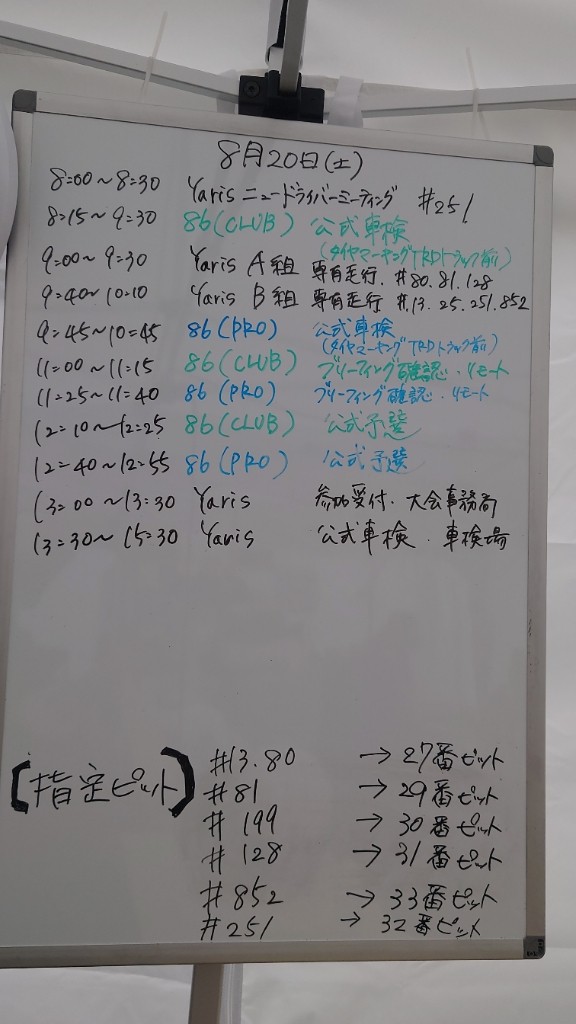 8月20日(土)
8:00～8:30 Yaris ニュードライバーミーティング #251
8:15～9:30 86(CLUB) 公式車検
(タイヤマーキングTRDトラック前)
9:00～9:30 Yaris A組 専有走行. #80.81.128
9:40～10:10 Yaris B組 専有走行 #.13.25.251.852
9:45～10:45 86(PRO) 公式車検
(タイヤマーキングTRDトラック前)
11:00～11:15 86(CLUB) ブリーフィング確認・リモート
11:25～11:40 86(PRO) ブリーフィング確認・リモート
12:10～12:25 86(CLUB) 公式予選
12:40～12:55 86(PRO) 公式予選
13:00～13:30 Yaris 参加受付・大会事務局
13:30～15:30 Yaris 公式車検・車検場
【指定ピット】 #13.80 → 27番ピット
#81 → 29番ピット
#199 → 30番ピット
#128 → 31番ピット
#852 → 33番ピット
#251 → 32番ピット